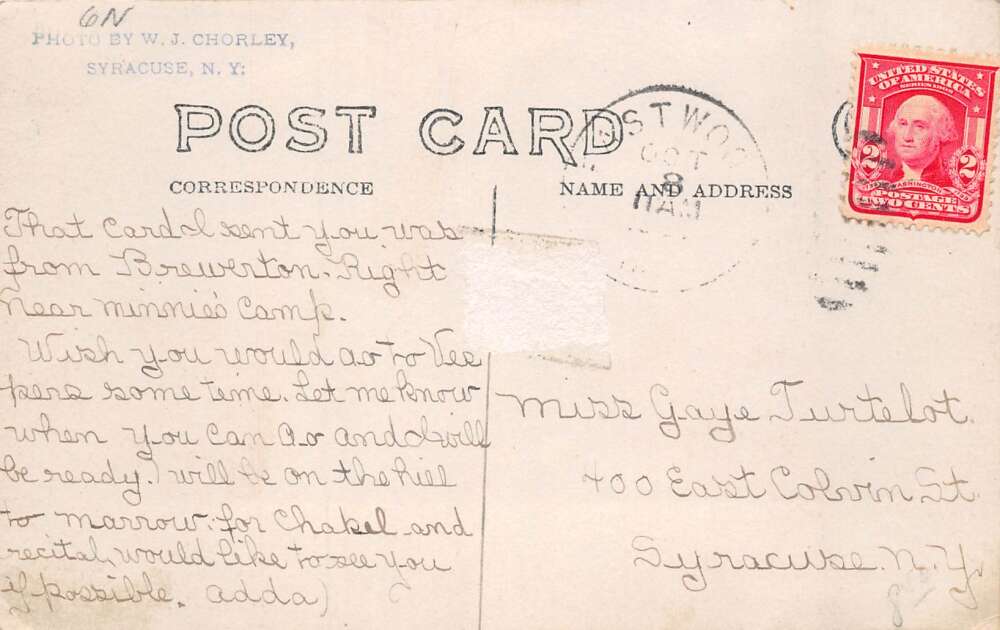 6N
PHOTO BY W. J. CHORLEY,
SYRACUSE, N. Y.
POST CARD
CORRESPONDENCE
NAME AND ADDRESS
OCT
8
11 AM
UNITED STATES
OF AMERICA
SERIES 1902
2 2
WASHINGTON
POSTAGE
TWO CENTS
That card I sent you was
from Brewerton. Right
near minnie's Camp.
Wish you would go to Ves
pers some time. Let me know
when you can go and I will
be ready. I will be on the hill
to marrow. for Chakel and
recital, would like to see you
if possible. Adda)
Miss Gaye Turtelot.
400 East Colvin St.
Syracuse. N. Y.